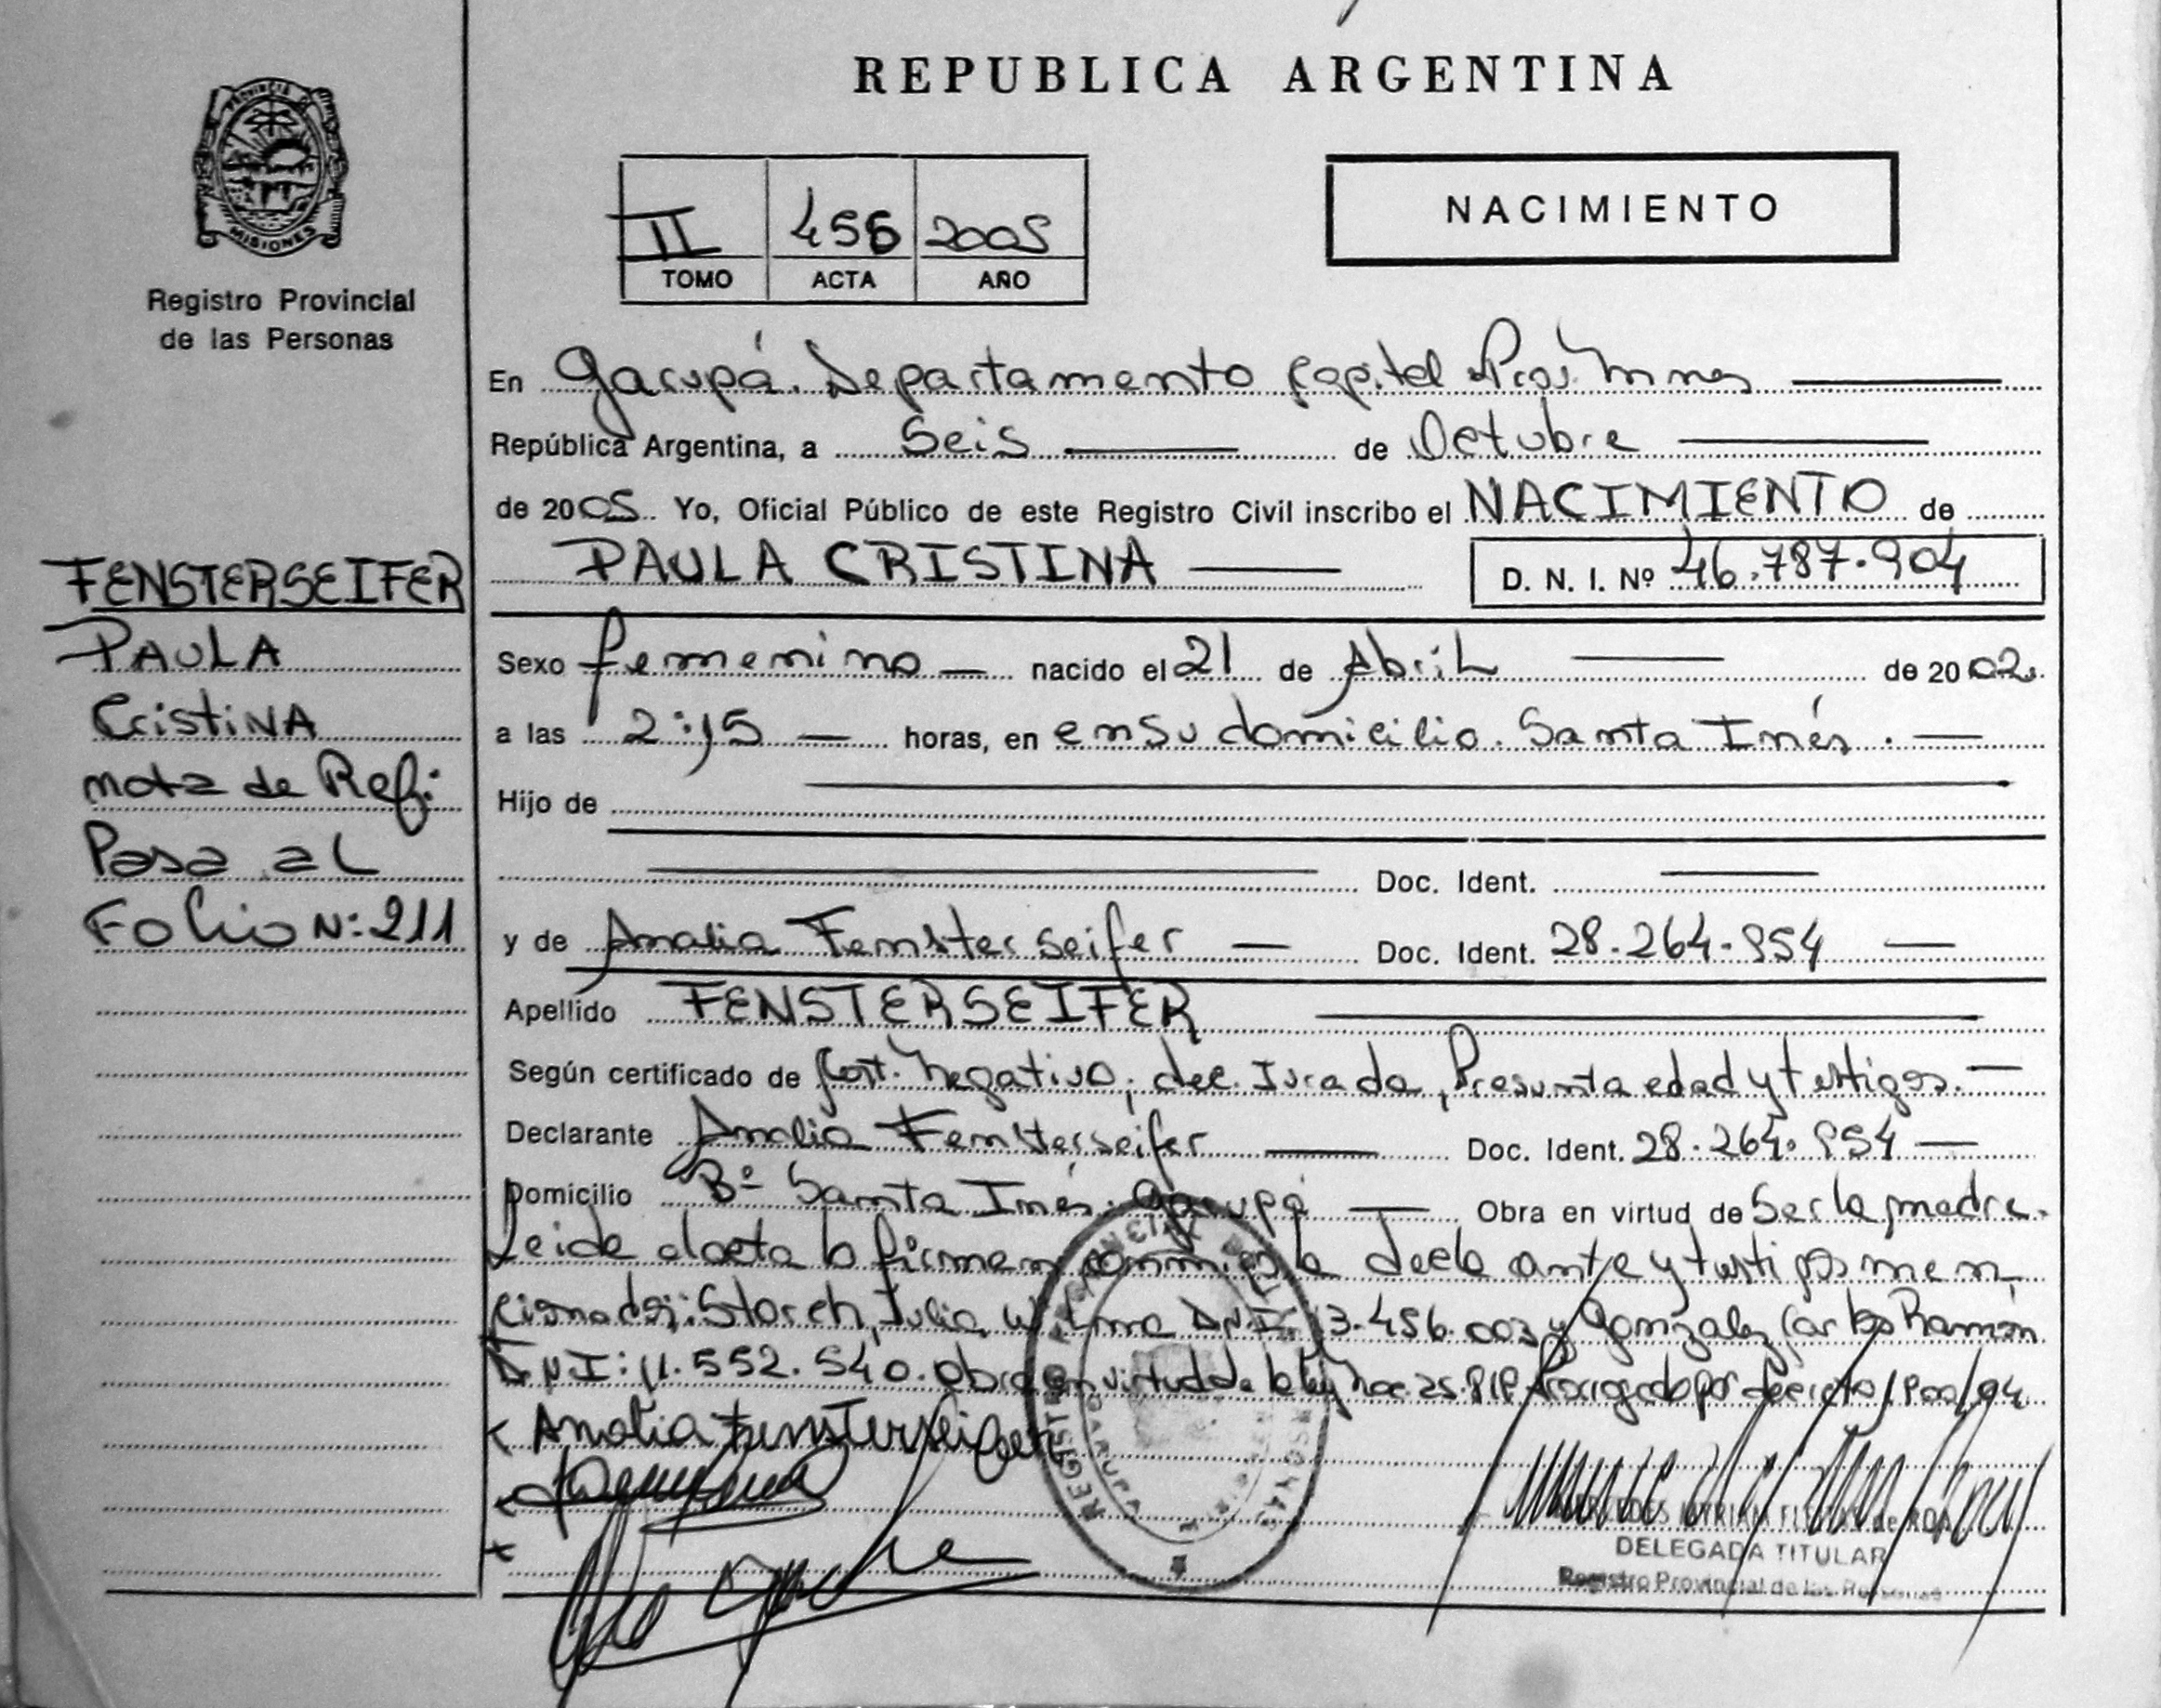 REPUBLICA ARGENTINA
PROVINCIA DE
MISIONES
Registro Provincial
de las Personas
II 456 2005
TOMO ACTA AÑO
NACIMIENTO
En Garupá. Departamento Capital Prov. Mnes
República Argentina, a Seis de Octubre
de 2005. Yo, Oficial Público de este Registro Civil inscribo el NACIMIENTO de
PAULA CRISTINA D. N. I. Nº 46.787.904
FENSTERSEIFER
PAULA
CristiNA
nota de Ref:
Pasa al
Folio N:211
Sexo femenino nacido el 21 de Abril de 2002.
a las 2:15 horas, en en su domicilio. Santa Inés.
Hijo de
Doc. Ident.
y de Amalia Fensterseifer Doc. Ident. 28.264.954
Apellido FENSTERSEIFER
Según certificado de Cert. Negativo, dec. Jurada, Presunta edad y testigos.
Declarante Amalia Fensterseifer Doc. Ident. 28.264.954
Domicilio Bº Santa Inés. Garupá Obra en virtud de Ser la madre.
Leida el acta la firman conmigo la declarante y testigos men
cionados: Storch, Julia DNI: 13.456.003 y Gonzalez Carlos Ramón
DNI: 11.552.540. Obra en virtud de la ley por decreto
Amalia Fensterseifer
REGISTRO PROVINCIAL DE LAS PERSONAS
GARUPA
DELEGADA TITULAR
Registro Provincial de las Personas